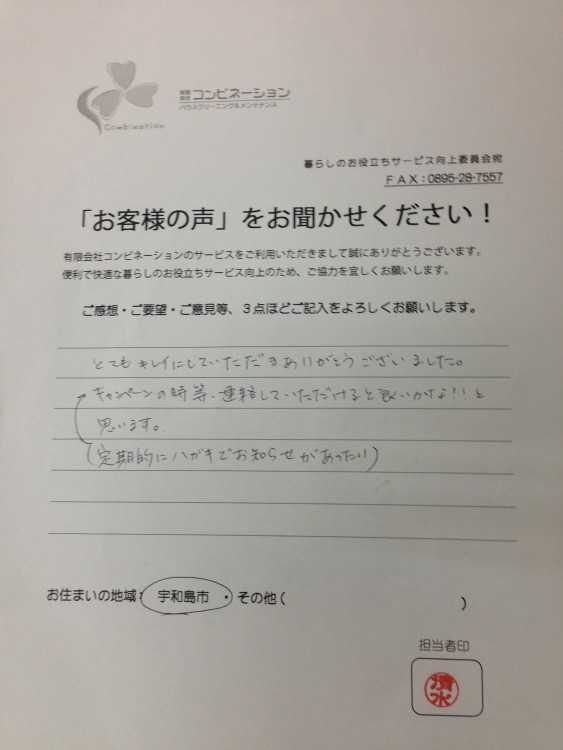 Combination
有限会社 コンビネーション
ハウスクリーニング&メンテナンス
暮らしのお役立ちサービス向上委員会宛
ＦＡＸ：0895-28-7557
「お客様の声」をお聞かせください！
有限会社コンビネーションのサービスをご利用いただきまして誠にありがとうございます。
便利で快適な暮らしのお役立ちサービス向上のため、ご協力を宜しくお願いします。
ご感想・ご要望・ご意見等、３点ほどご記入をよろしくお願いします。
とてもキレイにしていただきありがとうございました。
キャンペーンの時等、連絡していただけると良いかな!!と
思います。
(定期的にハガキでお知らせがあったり)
お住まいの地域： 宇和島市 ・ その他（ ）
担当者印
清水